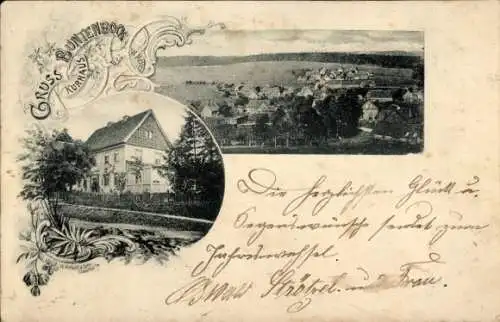 GRUSS
BUNTENBOCK
KURHAUS
Die herzlichsten Glück u.
Segenswünsche sendet zum
Jahreswechsel.
Oswald u. Frau.